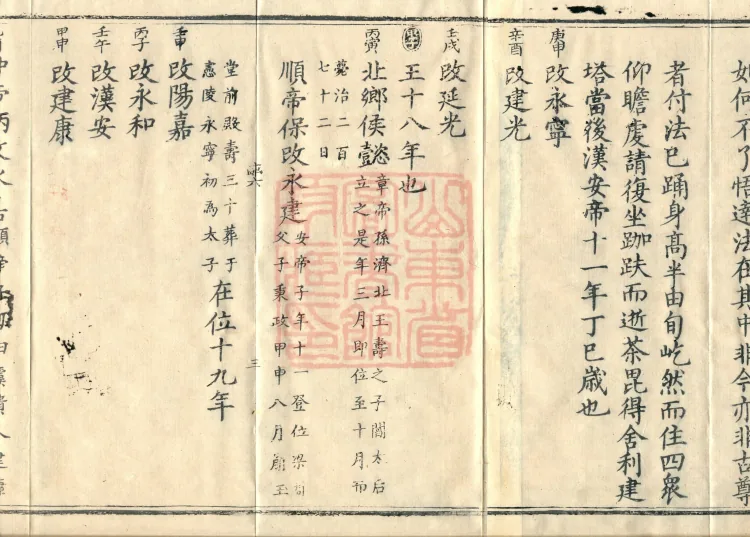 如何不了悟達法在其中非今亦非古尊
者付法已踊身高半由旬屹然而住四眾
仰瞻虔請復坐跏趺而逝荼毘得舍利建
塔當後漢安帝十一年丁巳歲也
庚申 改永寧
辛酉 改建光
壬戌 改延光
王十八年也
丙寅 北鄉侯懿壹
章帝孫濟北王壽之子閻太后
立之是年三月即位至十月而
薨治二百
七十二日
順帝保改永建
安帝子年十一登位梁商
父子秉政甲申八月崩玉
三
堂前殿壽三十葬于
憲陵永寧初為太子
在位十九年
壬申 改陽嘉
丙子 改永和
壬午 改漢安
甲申 改建康